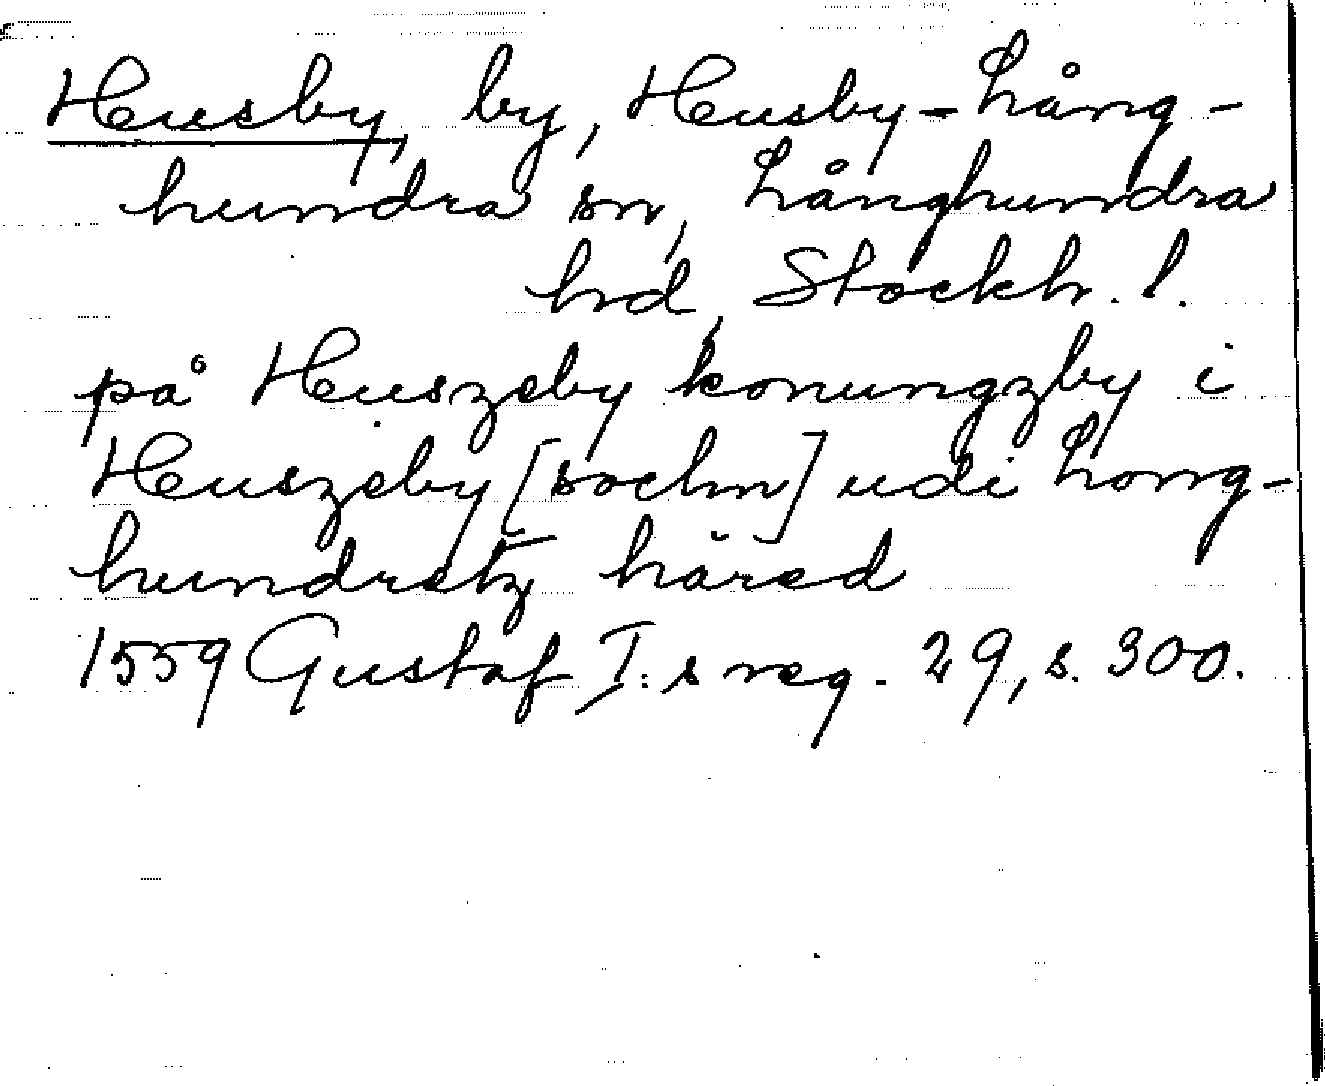 Husby, by, Husby-Lång-
hundra sn, Långhundra
hd, Stockh. l.
på Huszeby konungzby i
Huszeby [sochn] udi Long-
hundretz härad
1559 Gustaf I:s reg. 29, s. 300.